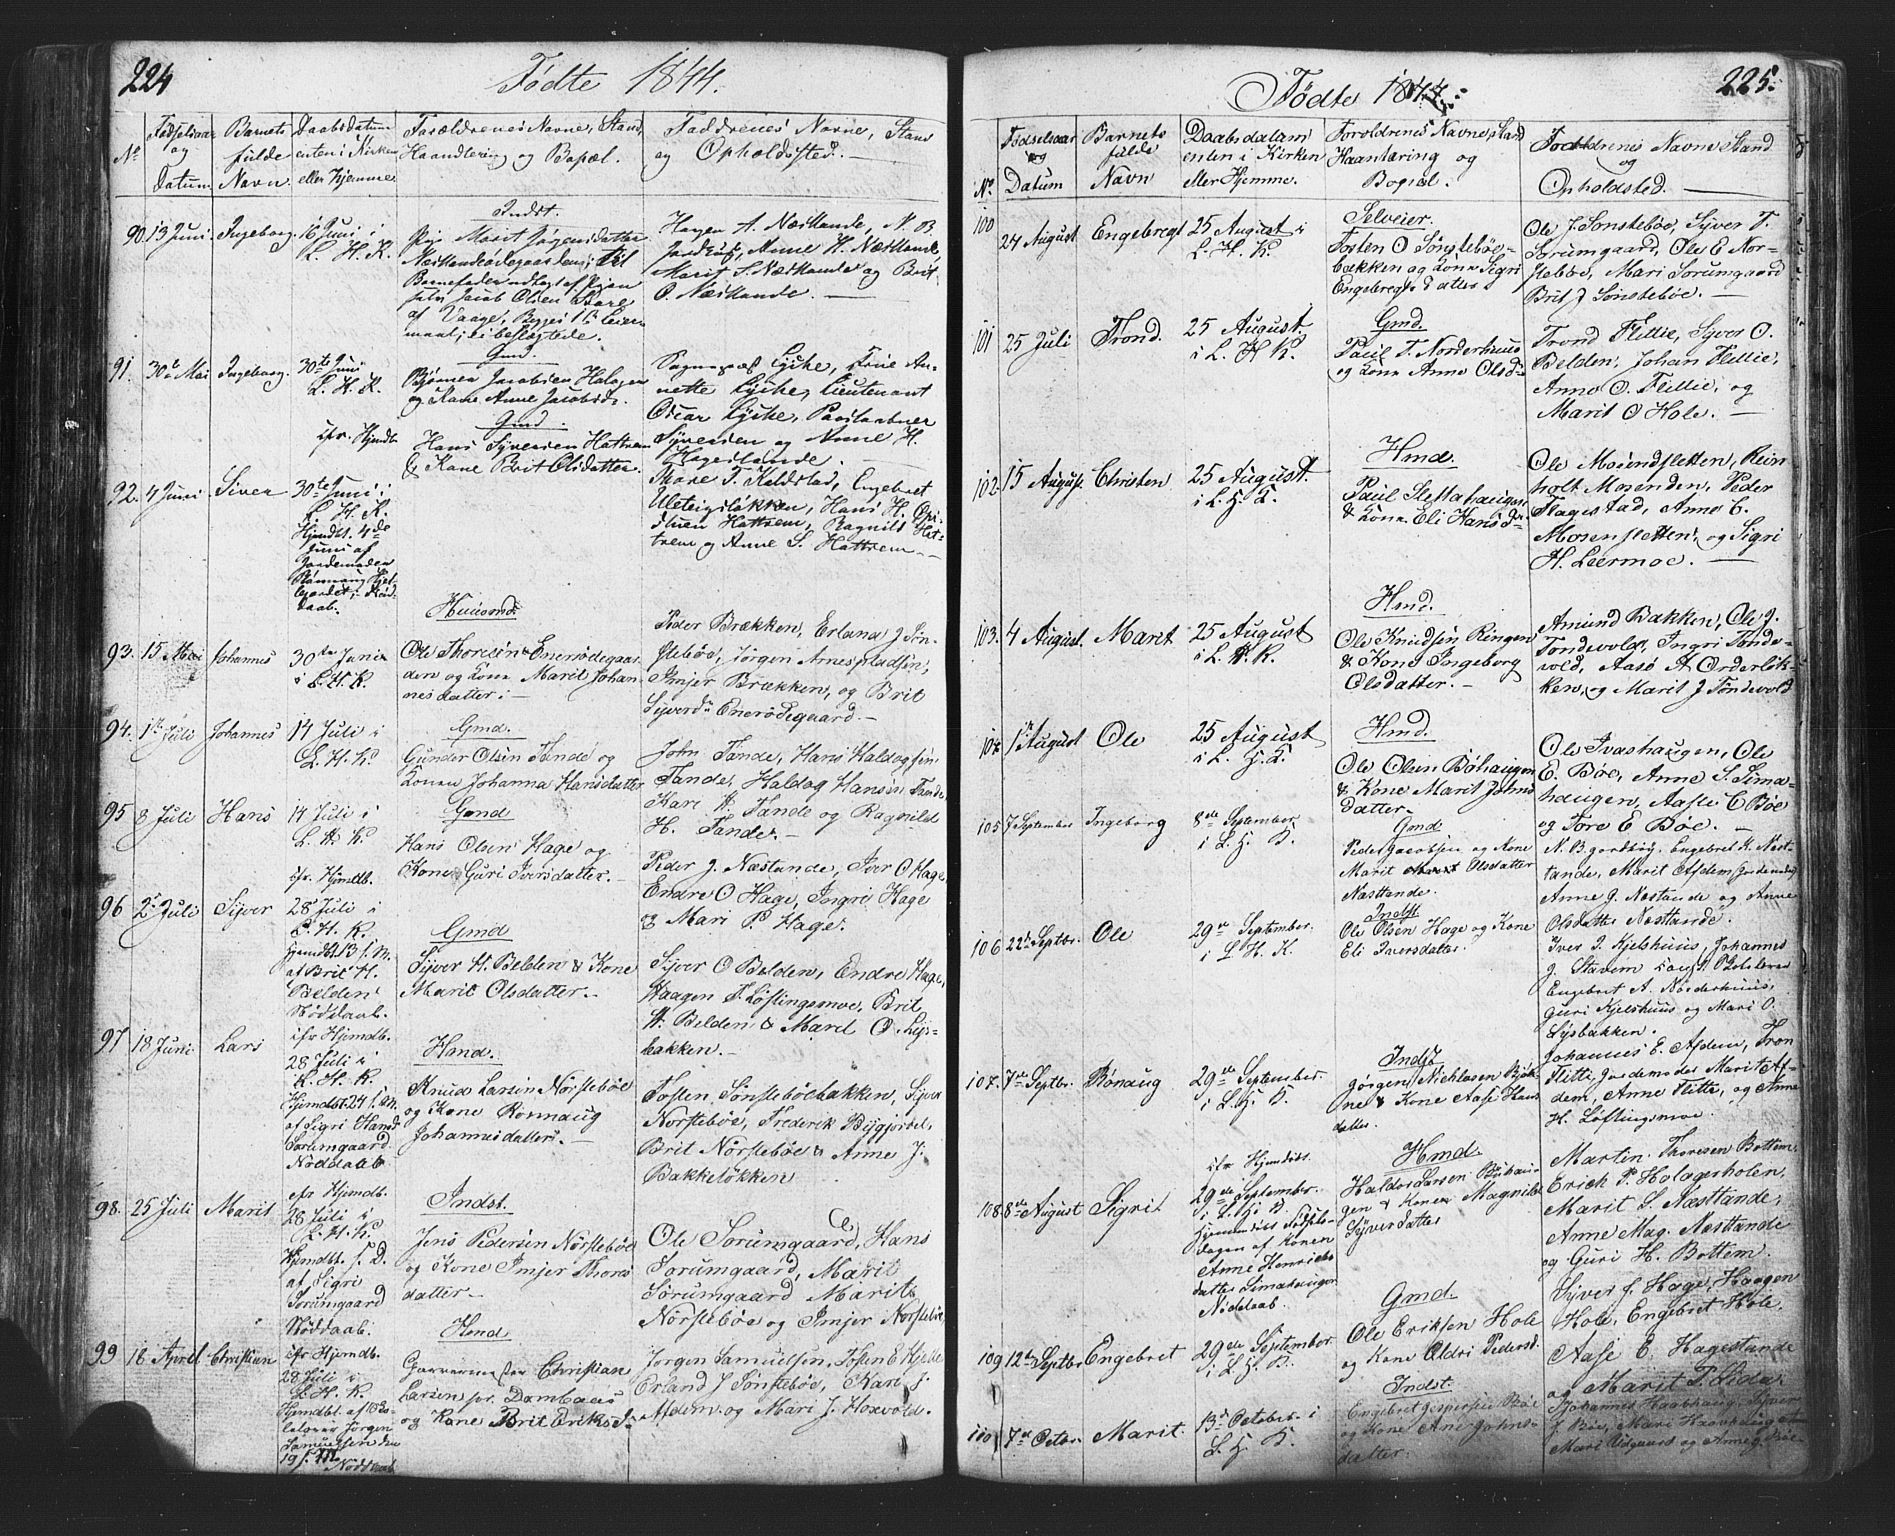 224
Fødte 1844.
No.
Fødselsaar
og
Datum
Barnets
fulde
Navn.
Daabsdatum
enten i Kirken
eller Hjemme
Forældrenes Navne, Stand,
Haandtering og Bopæl.
Faddrenes Navne, Stand
og Opholdssted.
90. 13 Juni. Ingeborg. 16 Juni i
L. H. K.
Indst.
Pige Marit Jørgensdatter
af Vaage, Begges 1ste Leier
maal;
Hagen A. Næstande, N. B.
Anne H. Næstande,
Marit S. Næstande og Brit
O. Næstande.
91. 30te Mai Ingeborg. 30te Juni
L. H. K.
Gmd.
Bjørner Jacobsen Holager
og Kone Anne Jacobsdr.
nette Lyske, Lieutenant
Oscar Lyske,
Syversen og Anne H.
92. 4 Juni Siver 30te Juni i
L. H. K.
Hjmdbt. 4de
Juni af
Jordemoder
daab.
Gmd.
Hans Syversen Hattrem
& Kone Brit Olsdatter.
Tore T. Keldstad, Engebret
Uleteigsløkken, Hans H.
Hattrem, Ragnild Hat-
trem og Anne S. Hattrem
93. 15 Mai Johannes 30te Juni
i L. H. K.
Huusmd.
Ole Thoresen Enerødegaar
den og Kone Marit Johan
nesdatter
Peder Brækken, Erland J Søn-
stebøe, Jørgen Arnespladsen,
Imjer Brækken, og Brit
Syverdr. Enerødegaard.
94. 1te Juli Johannes 14 Juli i
L. H. K.
Gmd.
Gunder Olsen Tande og
Konen Johanna Hansdatter
John Tande, Hans Haldogsen
Tande, Haldog Hansen Tande
Kari H. Tande og Ragnild
H. Tande.
95 8 Juli Hans 14 Juli i
L. H. K.
Gmd
Hans Olsen Hage og
Kone Guri Iversdatter.
Peder J. Næstande, Iver O Hage,
Endre O Hage, Ingri Hage
og Mari P. Hage.
96 2 Juli Syver
ifr. Hjemdb.
28 Juli i
L. H. K.
Hjemdbt 13 s. M.
af Brit H.
Belden
Nøddaab.
Gmd
Syver H. Belden & Kone
Marit Olsdatter.
Syver O Belden, Endre Hage,
Haagen T. Løftingsmoe, Brit
H. Belden & Marit O. Lys-
bakken.
97 18 Juni Lars
ifr Hjemdb.
28 Juli i
L. H. K.
Hjemdbt. 24 s. M.
af Sigri Hansd
Sorumgaard
Nøddaab
Hmd.
Knud Larsen Nørstebøe
og Kone Ronnaug
Johannesdatter.
Tosten Sønstebøebakken, Syver
Norstebøe, Frederik Byggjordet,
Brit Nørstebøe & Anne J.
Bakkeløkken
98. 25 Juli Marit
ifr Hjemdb.
28 Juli i
L. H. K.
Hjemdbt. s. D.
af Sigri
Sorumgaard
Nøddaab.
Indst.
Jens Pedersen Nørstebøe
og Kone Imjer Thores
datter
Ole Sorumgaard, Hans
Sorumgaard, Marit
Sørumgaard Marit
Nørstebøe og Imjer Norstebøe
99 18 April Christian
ifr Hjemdb.
28 Juli i
L. H. K.
Hjemdbt. af
Jørgen
Samuelsen den
19 s. M.
Nøddaab
Hmd
Christian
Larsen pr. Dombaas
og Kone Brit Eriksdr.
Jørgen Samuelsen, Tosten E Hjelle
Erland J Sønstebøe, Kari J.
Afdem og Mari J. Hoxvold.
225.
Fødte 1844.
No.
Fødselsaar
og
Datum
Barnets
fulde
Navn
Daabsdatum
enten i Kirken
eller Hjemme.
Foroldrenes Navne, Stand
Haantæring og
Bopæl.
Foddrenes Navne Stand
og
Opholdsted.
100 24 August Engebregt 25 August i
L. H. K.
Selveier.
Tosten O Sønstebøe-
bækken og Kone Sigri
Engebregts datter
Ole J Sønstebøe, Syver T.
Sorumgaard, Ole E Nor-
stebøe, Mari Sorumgaard
Brit J Sønstebøe.
101 25 Juli Trond. 25 August.
i L. H. K.
Gmd.
Paul T. Norderhuus
og Kone Anne Olsdr.
Trond Flittie, Syver O.
Belden, Johan Flittie,
Anne O. Flittie, og
Marit O Hole.
102. 15 August Christen 25 August.
i L. H. K.
Hmd.
Paul Slettahaugen
& Kone Eli Hansdr.
Ole Mosensletten, Rein
holt Mosenden, Peder
Flagestad, Anne E.
Mosensletten, og Sigri
H. Leermoe.
103. 4 August. Marit 25 August
i L. H. K.
Hmd.
Ole Knudsen Ringen
& Kone Ingeborg
Olsdatter.
Amund Bakken, Ole J.
Tøndevold, Ingri Tønde-
vold, Aase A Orderløk-
ken, og Marit J Tøndevold
104. 1te August Ole 25 August
i L. H. K.
Hmd.
Ole Olsen Bøhaugen
& Kone Marit Johns
datter
Ole Ivashaugen, Ole
E. Bøe, Anne S. Sima-
haugen, Aase E Bøe
og Tore E Bøe.
105 7 September Ingeborg 8de September.
i L. H. K.
Gmd
Peder Jacobsen og Kone
Marit Olsdatter
Næsttande.
Engebret H. Næst-
tande, Marit Afdem (Jordemoder)
Anne J. Næstande og Anne
Olsdatter Næsttande.
106 22de Septbr. Ole 29de September.
i L. H. K.
Indst
Ole Olsen Hage og Kone
Eli Iversdatter.
Iver I. Kjelshuus, Johannes
J. Stavem
Engebret A. Nørderhuus,
Guri Kjelshuus og Mari O.
Lysbakken.
107. 7de Septbr. Rønaug 29de September.
i L. H. K.
Indst
Jørgen Nichlasen Bjøk-
ne & Kone Aase Hans
datter
Johannes E. Afdem, Tron
Flitti Jordemoder Marit Af-
dem, Anne Flitti, og Anne
H. Løftingsmoe.
108. 8de August Sigrit
ifr Hjemdbt.
29de September.
i L. H. K.
dagen af Konen
Anne Henrichs
datter Simahaugen
Nødedaab.
Hmd.
Haldor Larsen
gen & Kone Magnild
Syverdatter
Martin Thoresen Bottem
Erich P. Holagerholen,
Marit S. Næsttande,
Anne Mag. Næsttande
og Guri H. Bottem.
109 12te Septbr. Engebret 29de September
i L. H. K.
Gmd.
Ole Eriksen Hole
og Kone Oldri Pedersd.
Syver J. Hage, Haagen
Hole, Engebret Hole.
Aase E. Hagestande
og Marit P. Lida.
110 7de Octbr. Marit. 13de October i
L. H. K.
Indst.
Engebret Jespersen Bøe
og Kone Ane Johns
datter.
Johannes Haabhaug, Syver
J. Bøe, Mari Haabhaug
Mari Udgaard og Anne J. Bøe